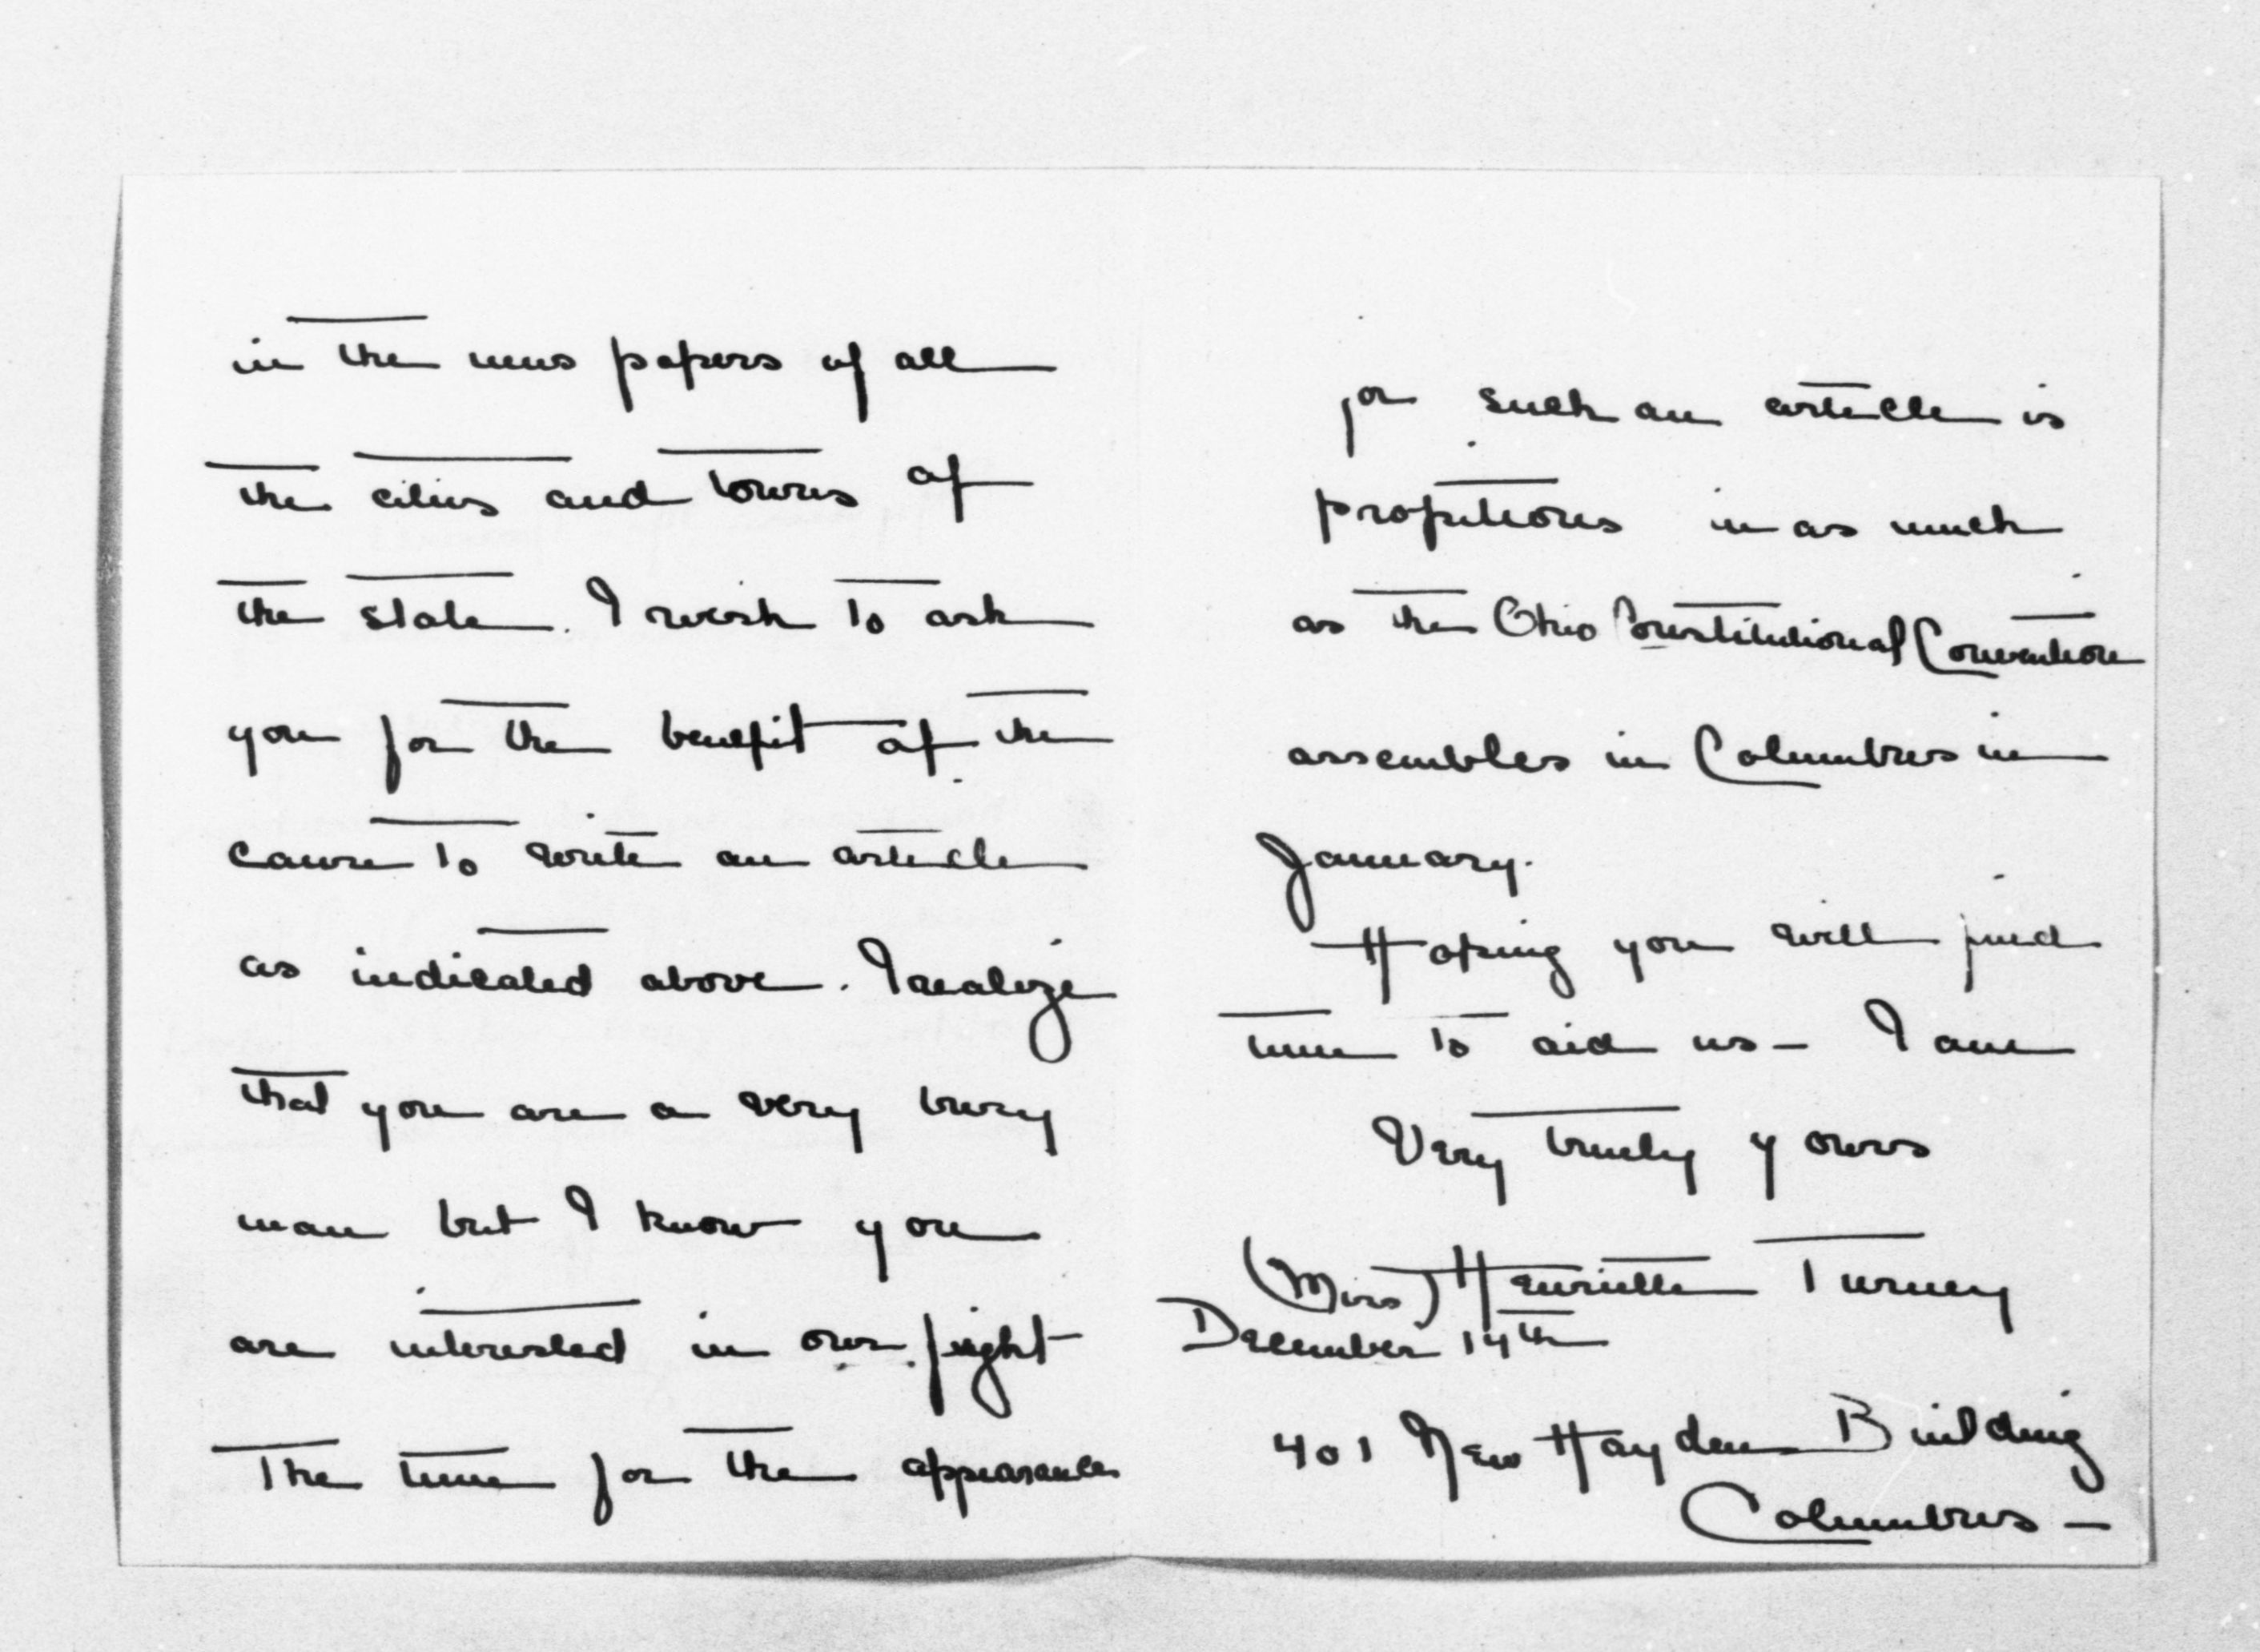 in the news papers of all
the cities and towns of
the state. I wish to ask
you for the benefit of the
cause to write an article
as indicated above. I realize
that you are a very busy
man but I know you
are interested in our fight
The time for the appearance
for such an article is
propitious in as much
as the Ohio Constitutional Convention
assembles in Columbus in
January.
Hoping you will find
time to aid us - I am
Very truly yours
(Miss) Henriette Turney
December 14th
401 New Hayden Building
Columbus -